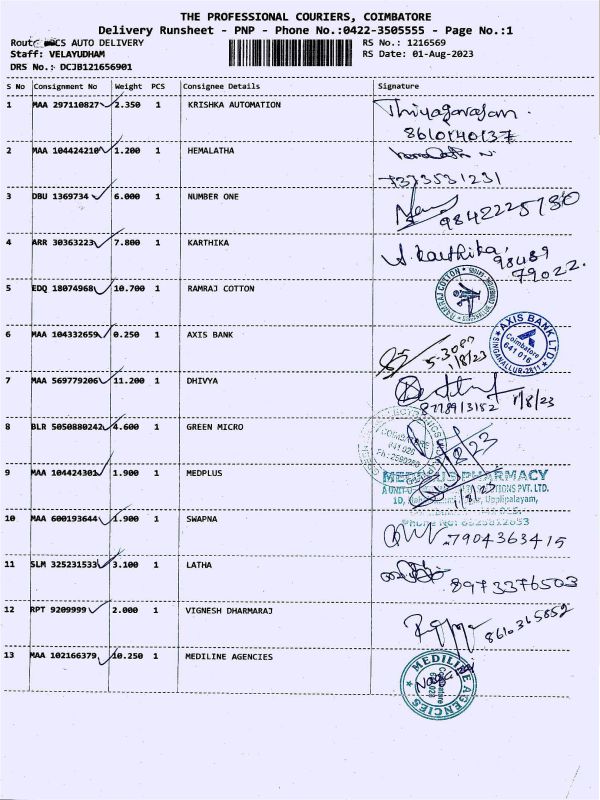 THE PROFESSIONAL COURIERS, COIMBATORE
Delivery Runsheet - PNP - Phone No.:0422-3505555 - Page No.:1
CS AUTO DELIVERY
Staff: VELAYUDHAM
DRS No.: DCJB121656901
RS No.: 1216569
RS Date: 01-Aug-2023
S No Consignment No Weight PCS Consignee Details Signature
1 MAA 297110827 2.350 1 KRISHKA AUTOMATION Thiyagarajan.
8610140137
2 MAA 104424210 1.200 1 HEMALATHA
7373531231
3 DBU 1369734 6.000 1 NUMBER ONE 9842225730
4 ARR 30363223 7.800 1 KARTHIKA A. Karthika,
98489
79022.
5 EDQ 18074968 10.700 1 RAMRAJ COTTON RAMRAJ COTTON
6 MAA 104332659 0.250 1 AXIS BANK 1/8/23
AXIS BANK LTD
Coimbatore
641 016
SINGANALLUR-2811
7 MAA 569779206 11.200 1 DHIVYA
1/8/23
8 BLR 5050880242 4.600 1 GREEN MICRO
COIMBATORE
9 MAA 104424301 1.900 1 MEDPLUS PHARMACY
PVT. LTD.
Uppilipalayam,
1/8/23
10 MAA 600193644 1.900 1 SWAPNA 7904363415
11 SLM 325231533 3.100 1 LATHA 8973376503
12 RPT 9209999 2.000 1 VIGNESH DHARMARAJ 8610365852
13 MAA 102166379 10.250 1 MEDILINE AGENCIES MEDILINE AGENCIES